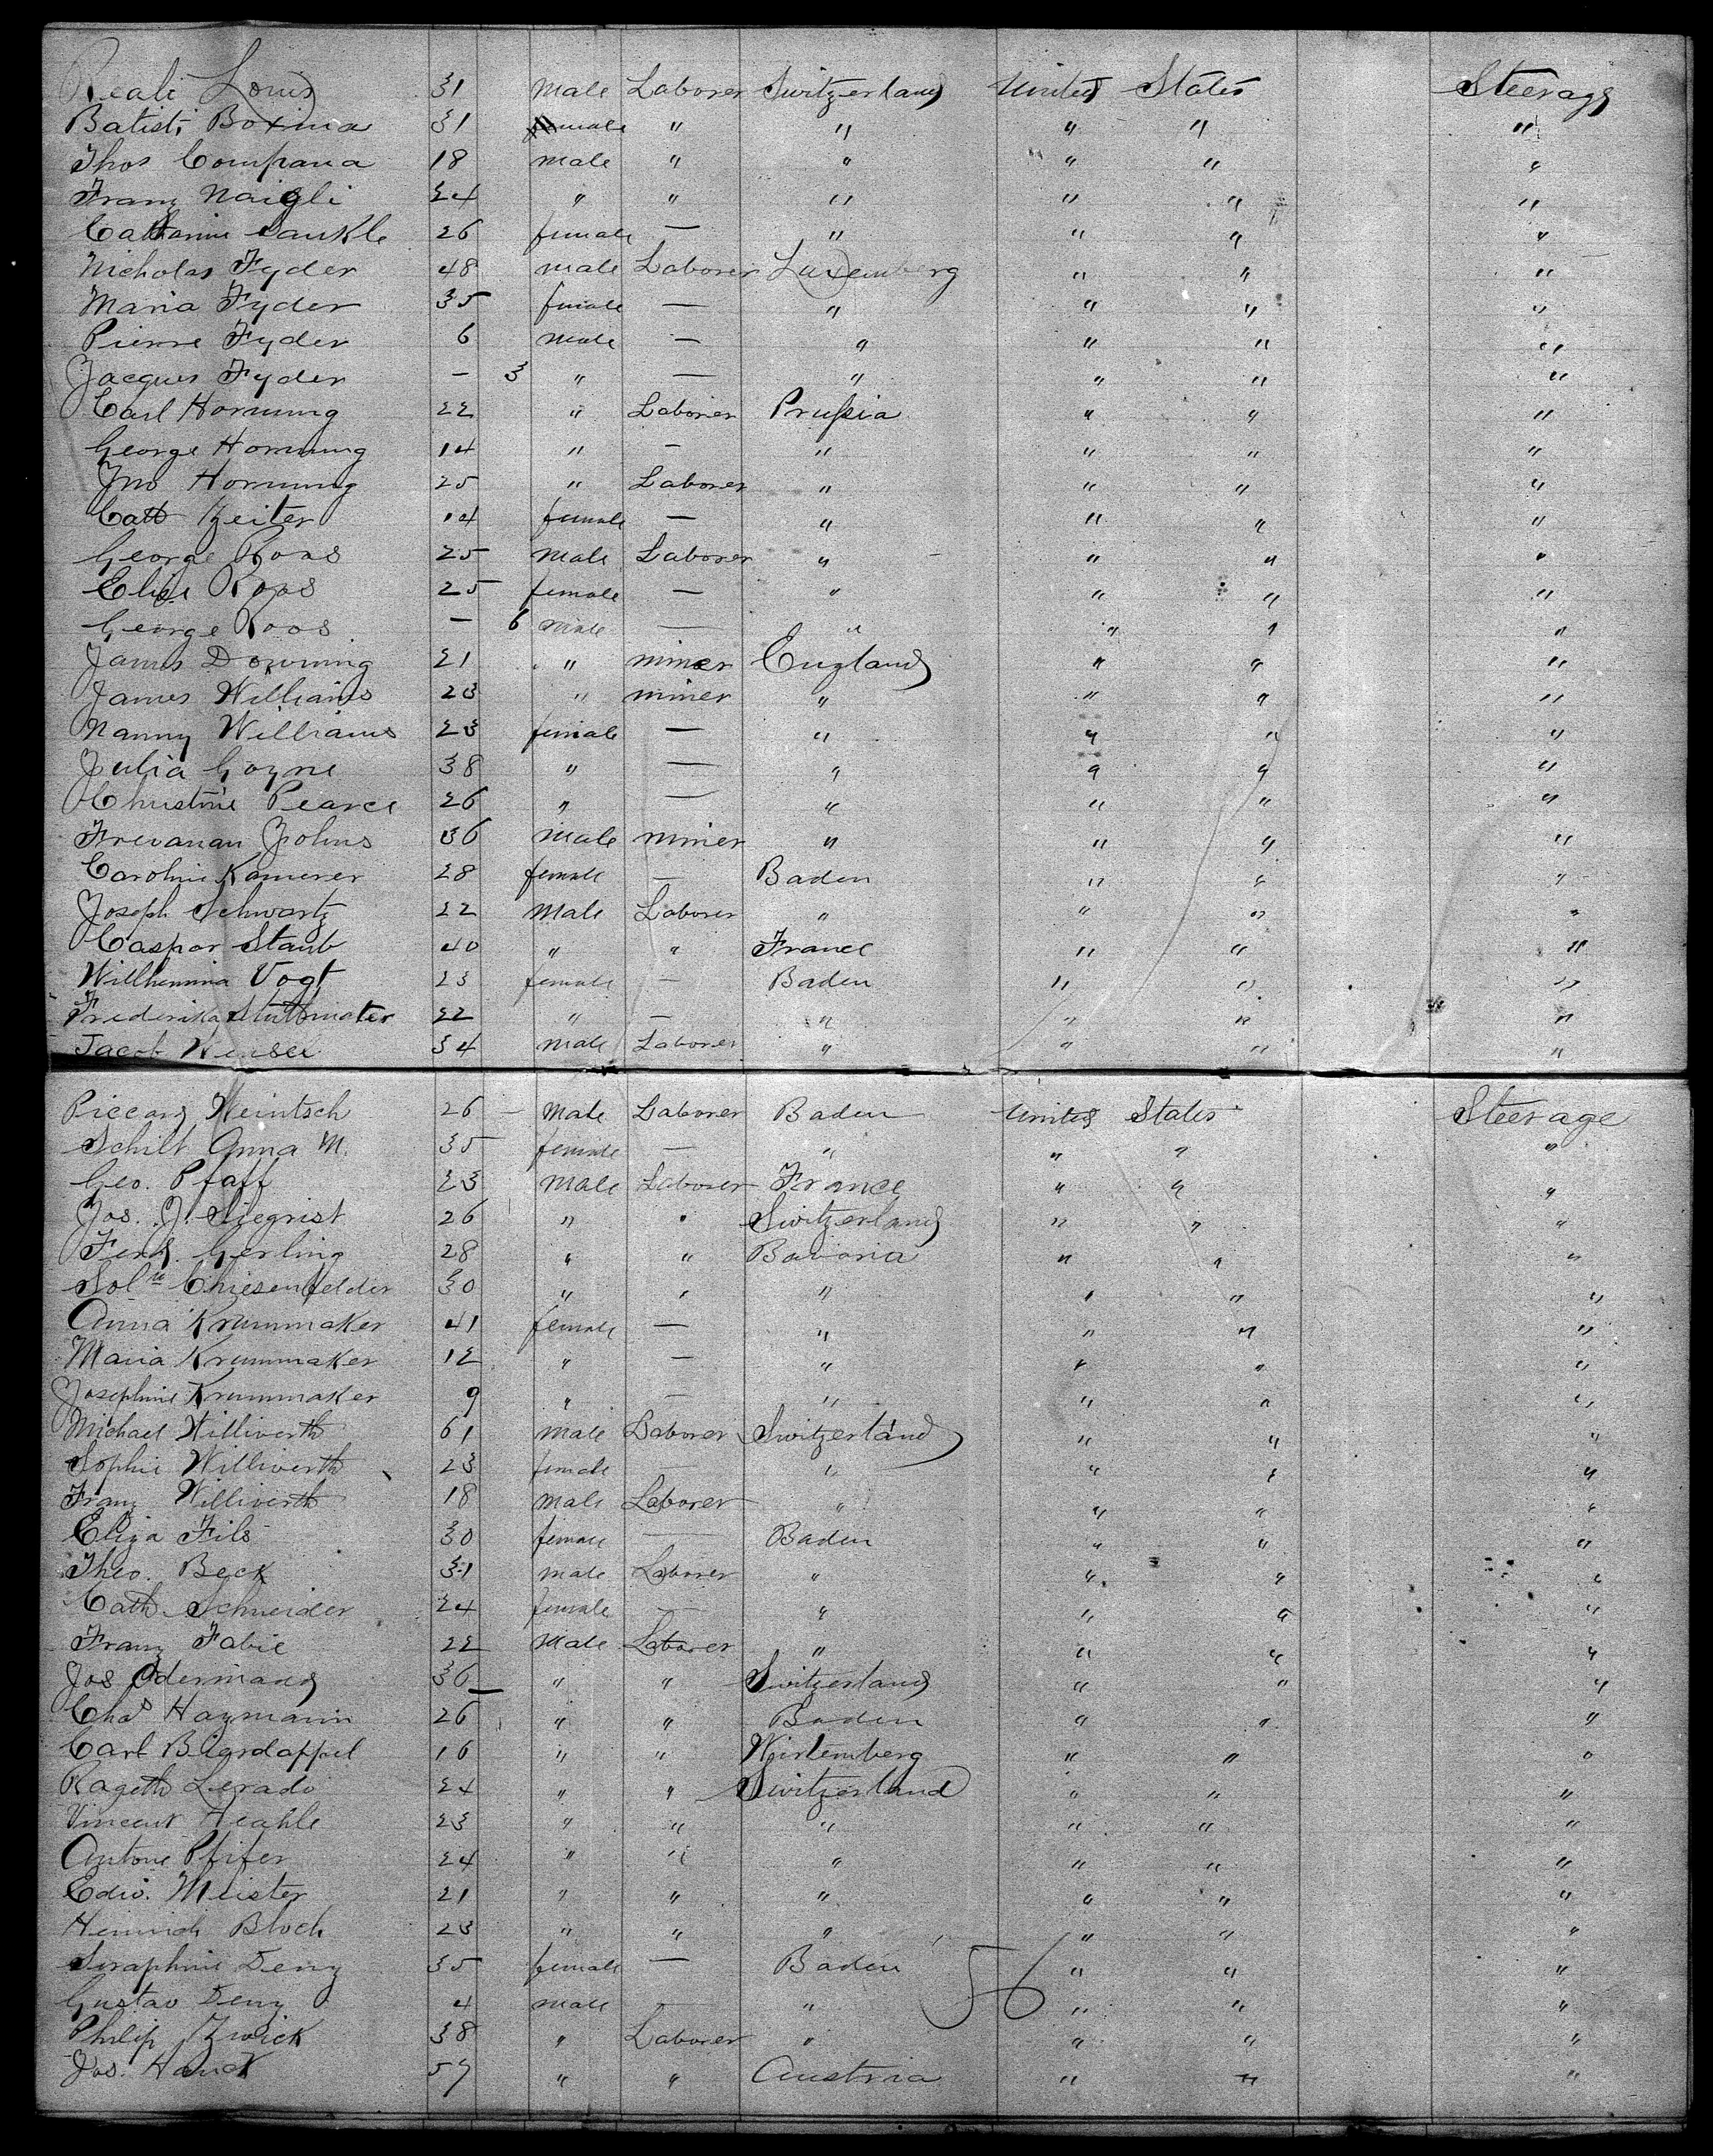 Reali Louis 31 Male Laborer Switzerland United States Steerage
Batisti Boxina 31 female " " " " "
Thos Compana 18 male " " " " "
Franz Naigli 24 " " " " " "
Catharine Sankle 26 female — " " " "
Nicholas Fyder 48 male Laborer Luxemberg " " "
Maria Fyder 35 female — " " " "
Pierre Fyder 6 male — " " " "
Jacques Fyder — 3 " — " " " "
Carl Hornung 22 " Laborer Prussia " " "
George Hornung 14 " — " " " "
Jno Hornung 25 " Laborer " " " "
Cath Zeiter 14 female — " " " "
George Roos 25 male Laborer " " " "
Elise Roos 25 female — " " " "
George Roos — 6 male — " " " "
James Downing 21 " miner England " " "
James Williams 23 " miner " " " "
Nanny Williams 23 female — " " " "
Julia Goyne 38 " — " " " "
Christine Pearce 26 " — " " " "
Frevanan Johns 36 male miner " " " "
Caroline Kamerer 28 female — Baden " " "
Joseph Schwartz 22 Male Laborer " " " "
Caspar Staub 40 " " France " " "
Wilhemina Vogt 23 female — Baden " " "
Frederika 22 " — " " " "
Jacob 34 male Laborer " " " "
Piccard Heintsch 26 — Male Laborer Baden United States Steerage
Schilt Anna M. 35 female — " " " "
Geo. Pfaff 23 male Laborer France " " "
Jos. J. Siegrist 26 " " Switzerland " " "
Ferd. Gerling 28 " " Bavaria " " "
Chiesenfelder 30 " " " " " "
Anna Krummaker 41 female — " " " "
Maria Krummaker 12 " — " " " "
Josephine Krummaker 9 " — " " " "
Michael Williverth 61 male Laborer Switzerland " " "
Sophie Williverth 23 female — " " " "
Franz Williverth 18 male Laborer " " " "
Eliza Fils 30 female — Baden " " "
Theo. Beck 31 male Laborer " " " "
Cath. Schneider 24 female — " " " "
Franz Fabie 22 Male Laborer " " " "
Jos Odermand 36 " " Switzerland " " "
Chas Haymann 26 " " Baden " " "
Carl Bigrdappel 16 " " Wirtemberg " " "
Rageth Lerado 24 " " Switzerland " " "
Vincent Heahle 23 " " " " " "
Antone Pfifer 24 " " " " " "
Edw. Meister 21 " " " " " "
Heinrich Bloch 23 " " " " " "
Seraphine Deny 35 female — Baden " " "
Gustav Deny 4 male — " 56 " " "
Philip Zwick 38 " Laborer " " " "
Jos. Hauck 57 " " Austria " " "